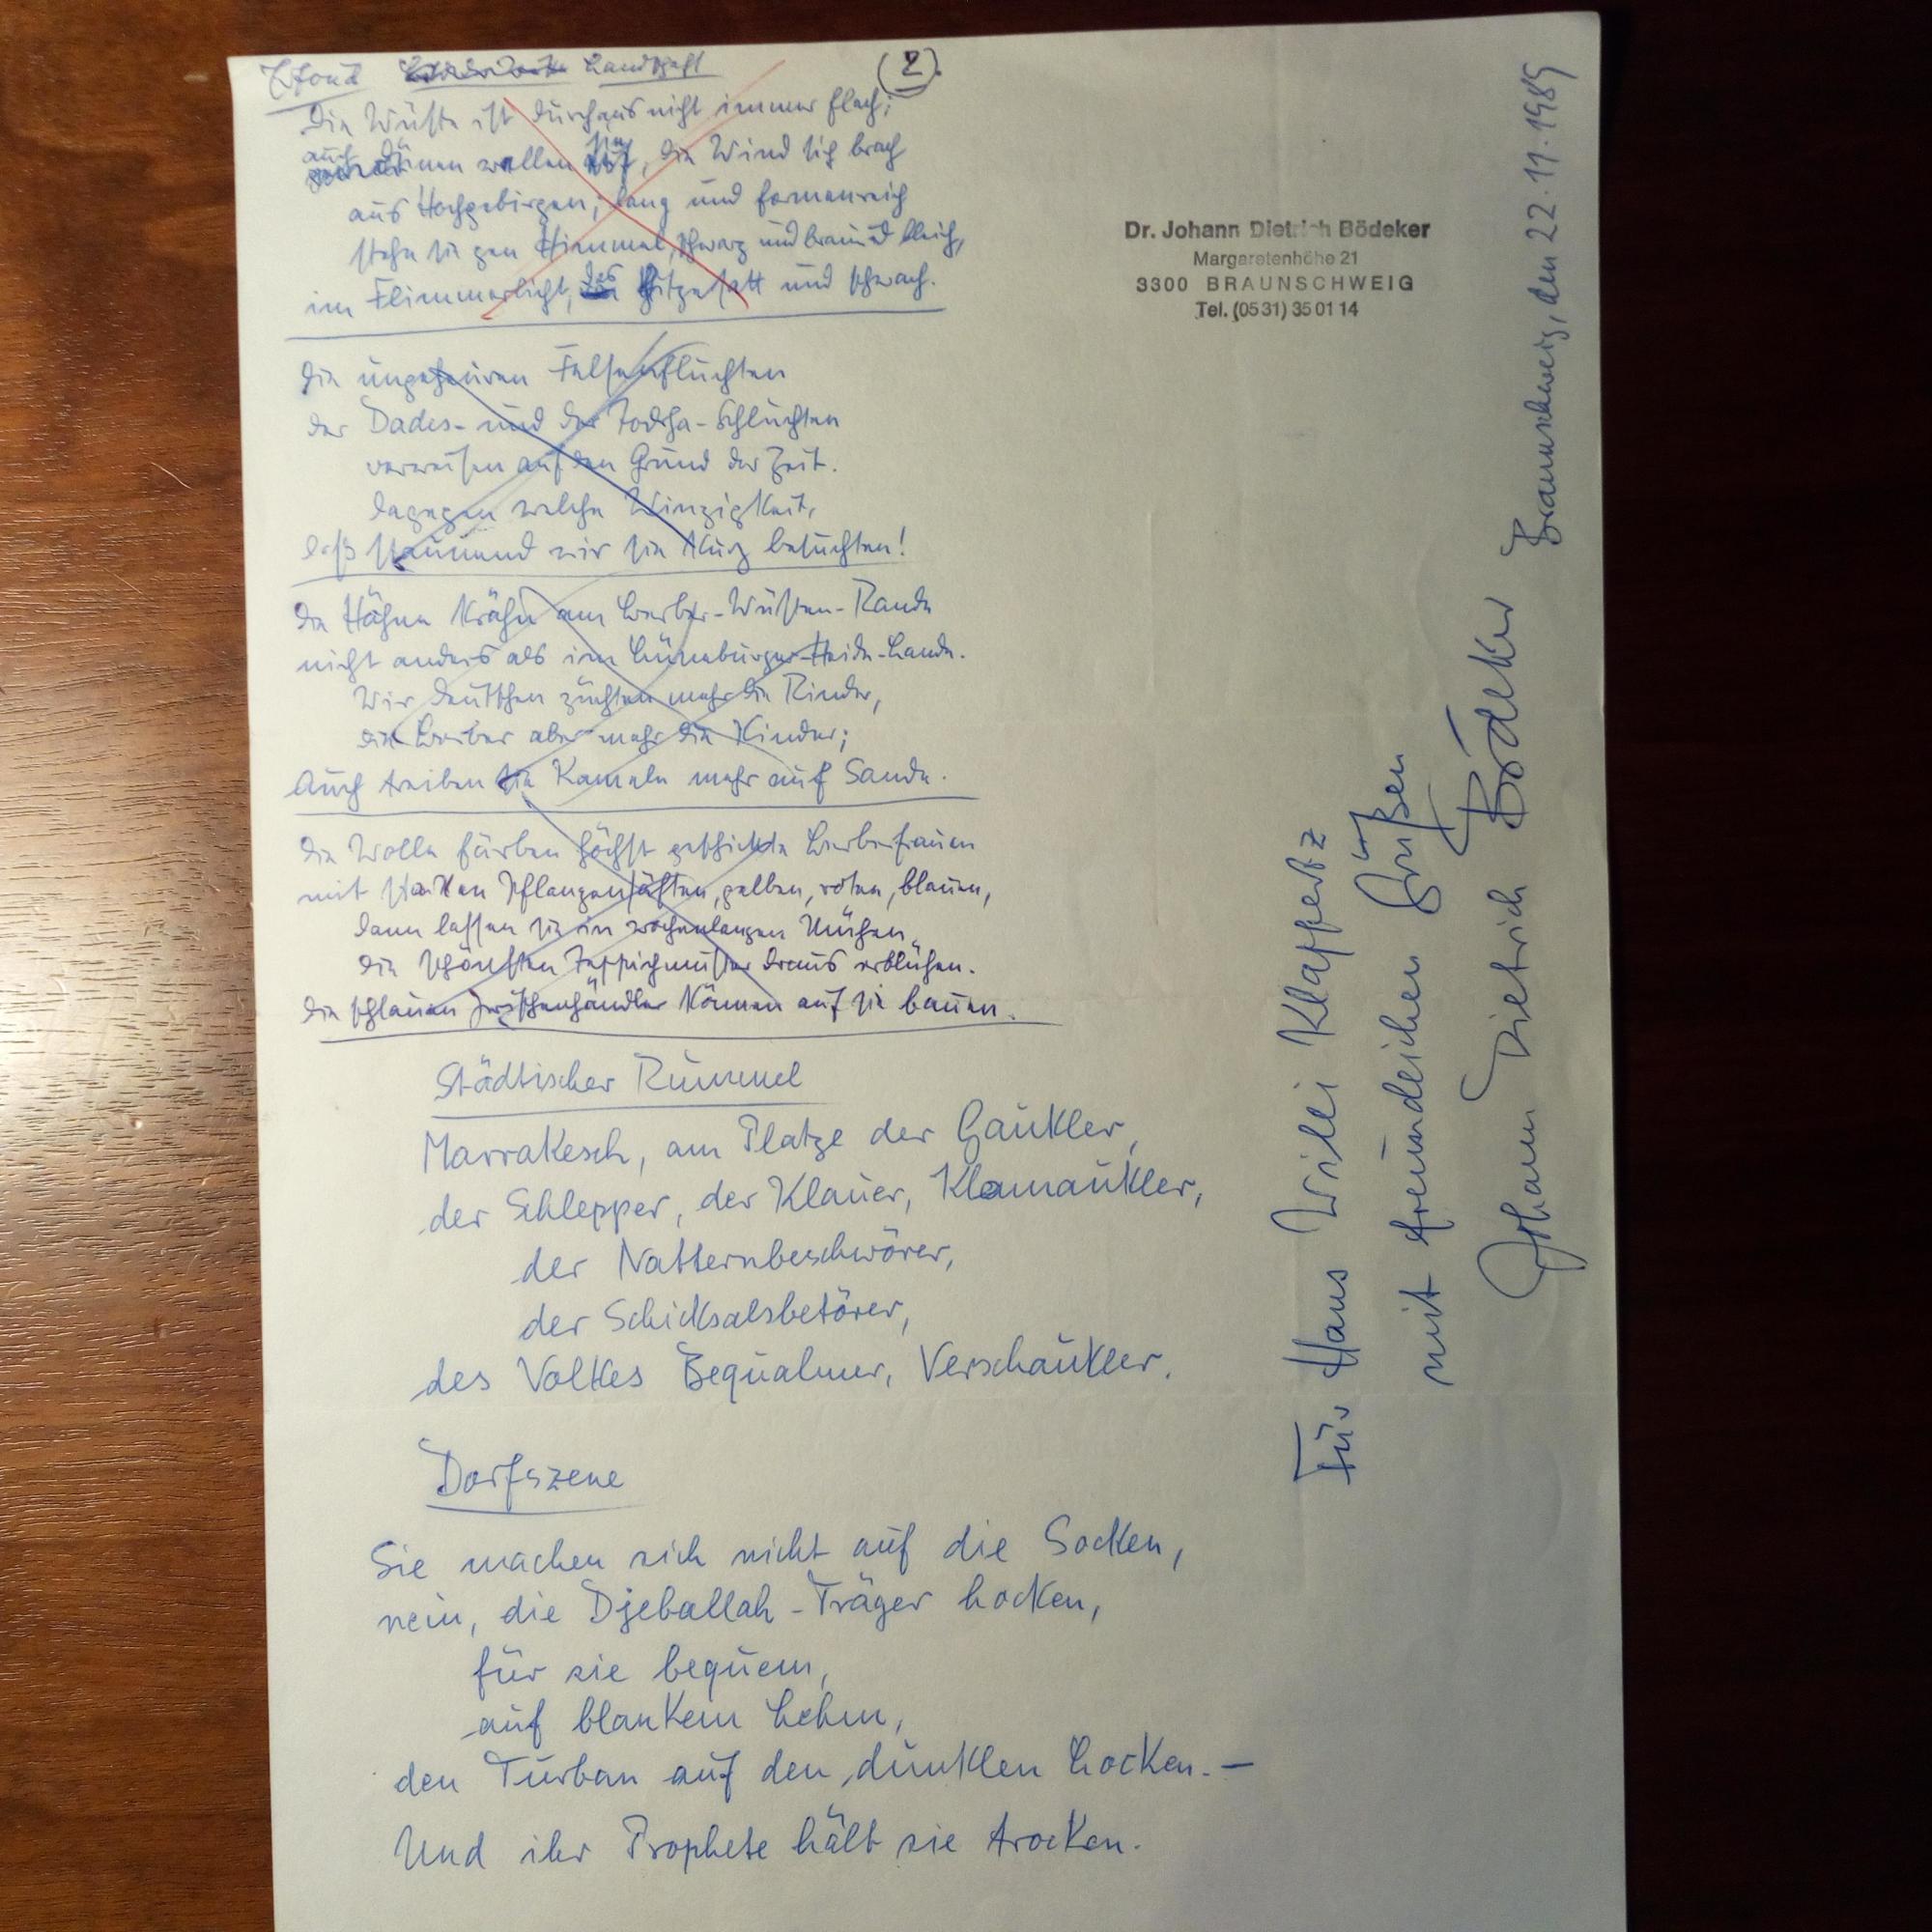 Erfoud Landschaft (2).
Die Wüste ist durchaus nicht immer flach;
auch Dünen wellen sie, die Wind sich brach
aus Hochgebirgen; lang und formenreich
stehn sie gen Himmel, schwarz und braun und bleich,
im Flimmerlicht, des Hitze satt und schwach.
Die ungeheuren Felsenfluchten
der Dades- und der Todrha-Schluchten
verweisen auf den Grund der Zeit.
Dagegen welche Winzigkeit,
daß staunend wir sie kurz besuchten!
Die Hähne krähn am Berber-Wüsten-Rande
nicht anders als im Lüneburger-Heide-Lande.
Wir Deutschen züchten mehr die Rinder,
die Berber aber mehr die Kinder;
Auch treiben sie Kamele mehr auf Sande.
Die Wolle färben höchst geschickte Berberfrauen
mit starken Pflanzensäften, gelben, roten, blauen,
dann lassen sie in wochenlangen Mühen
die schönsten Teppichmuster draus erblühen.
Die schlauen Zwischenhändler können auf sie bauen.
Städtischer Rummel
Marrakesch, am Platze der Gaukler,
der Schlepper, der Klauer, Klamaukler,
der Natternbeschwörer,
der Schicksalsbetörer,
des Volkes Bequalmer, Verschaukler.
Dorfszene
Sie machen sich nicht auf die Socken,
nein, die Djeballah-Träger hocken,
für sie bequem,
auf blankem Lehm,
den Turban auf den dunklen Locken. –
Und ihr Prophete hält sie trocken.
Dr. Johann Dietrich Bödeker
Margaretenhöhe 21
3300 BRAUNSCHWEIG
Tel. (05 31) 35 01 14
Für Hans Willi Klappertz
mit freundlichen Grüßen
Johann Dietrich Bödeker
Braunschweig, den 22.11.1989